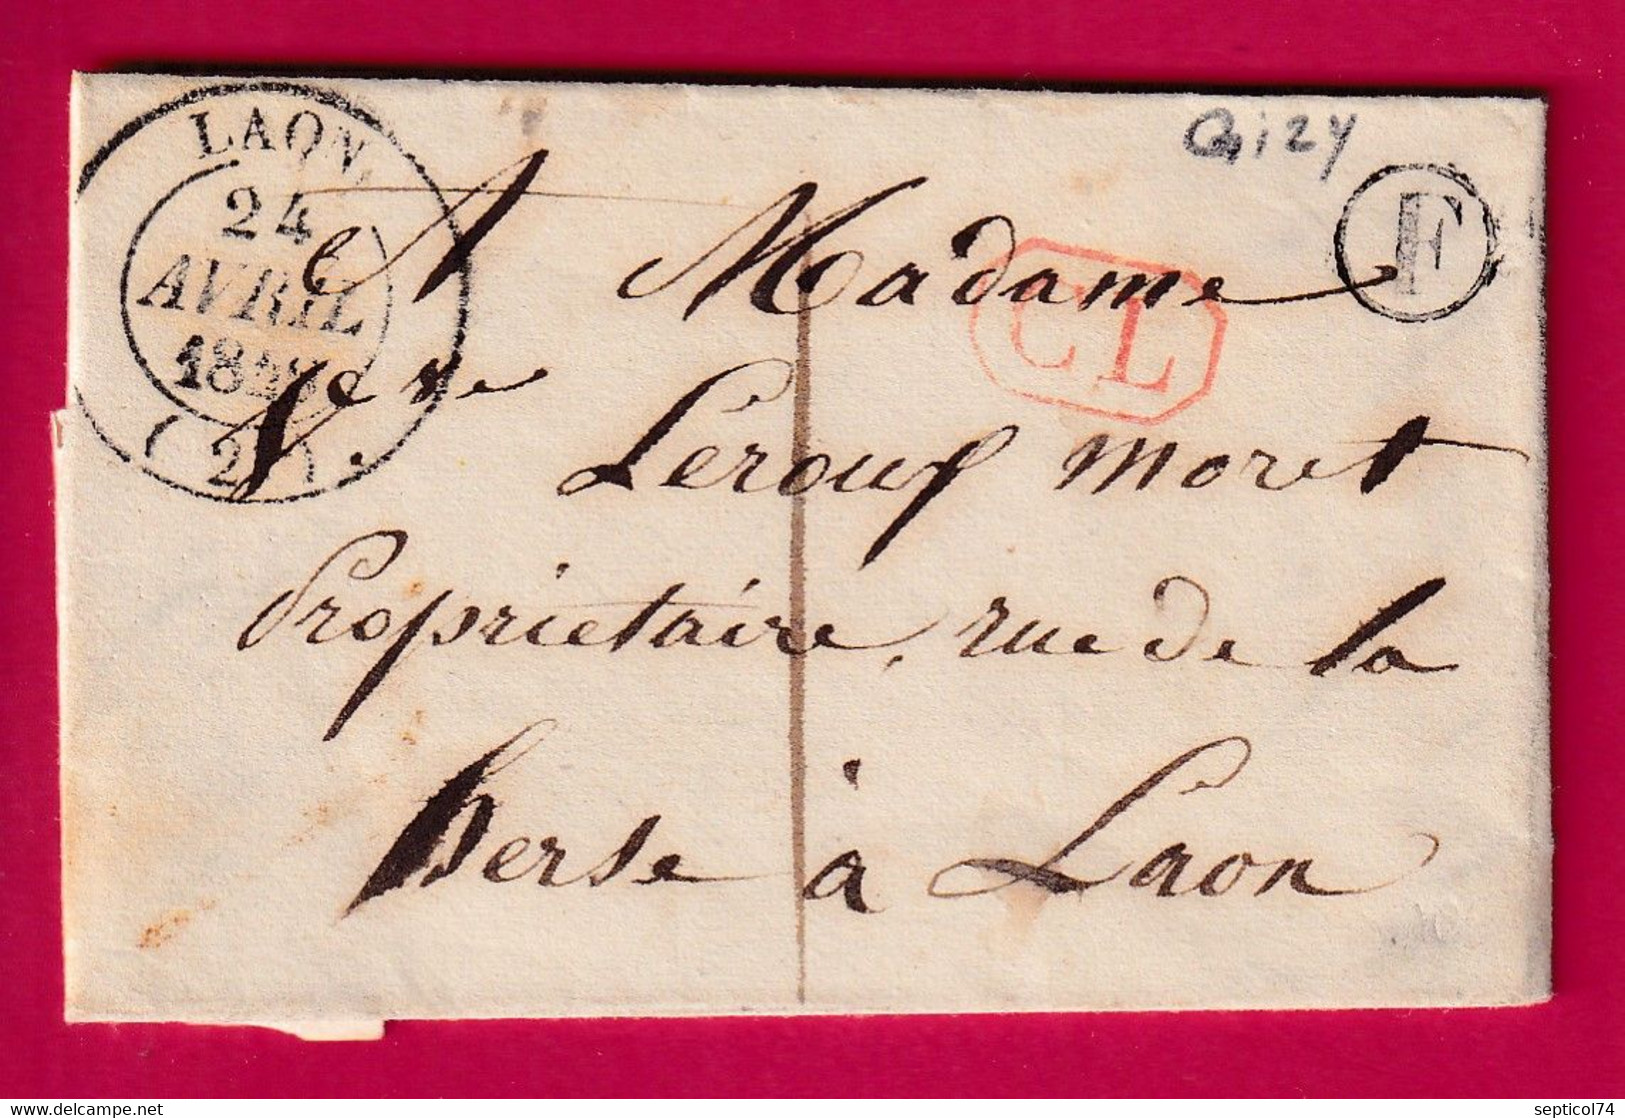 LAON.
24
AVRIL
(2)
Gizy
F
CL
A Madame
Ve
Leroux Moret
Propriétaire, rue de la
herse à Laon
1
septicol74